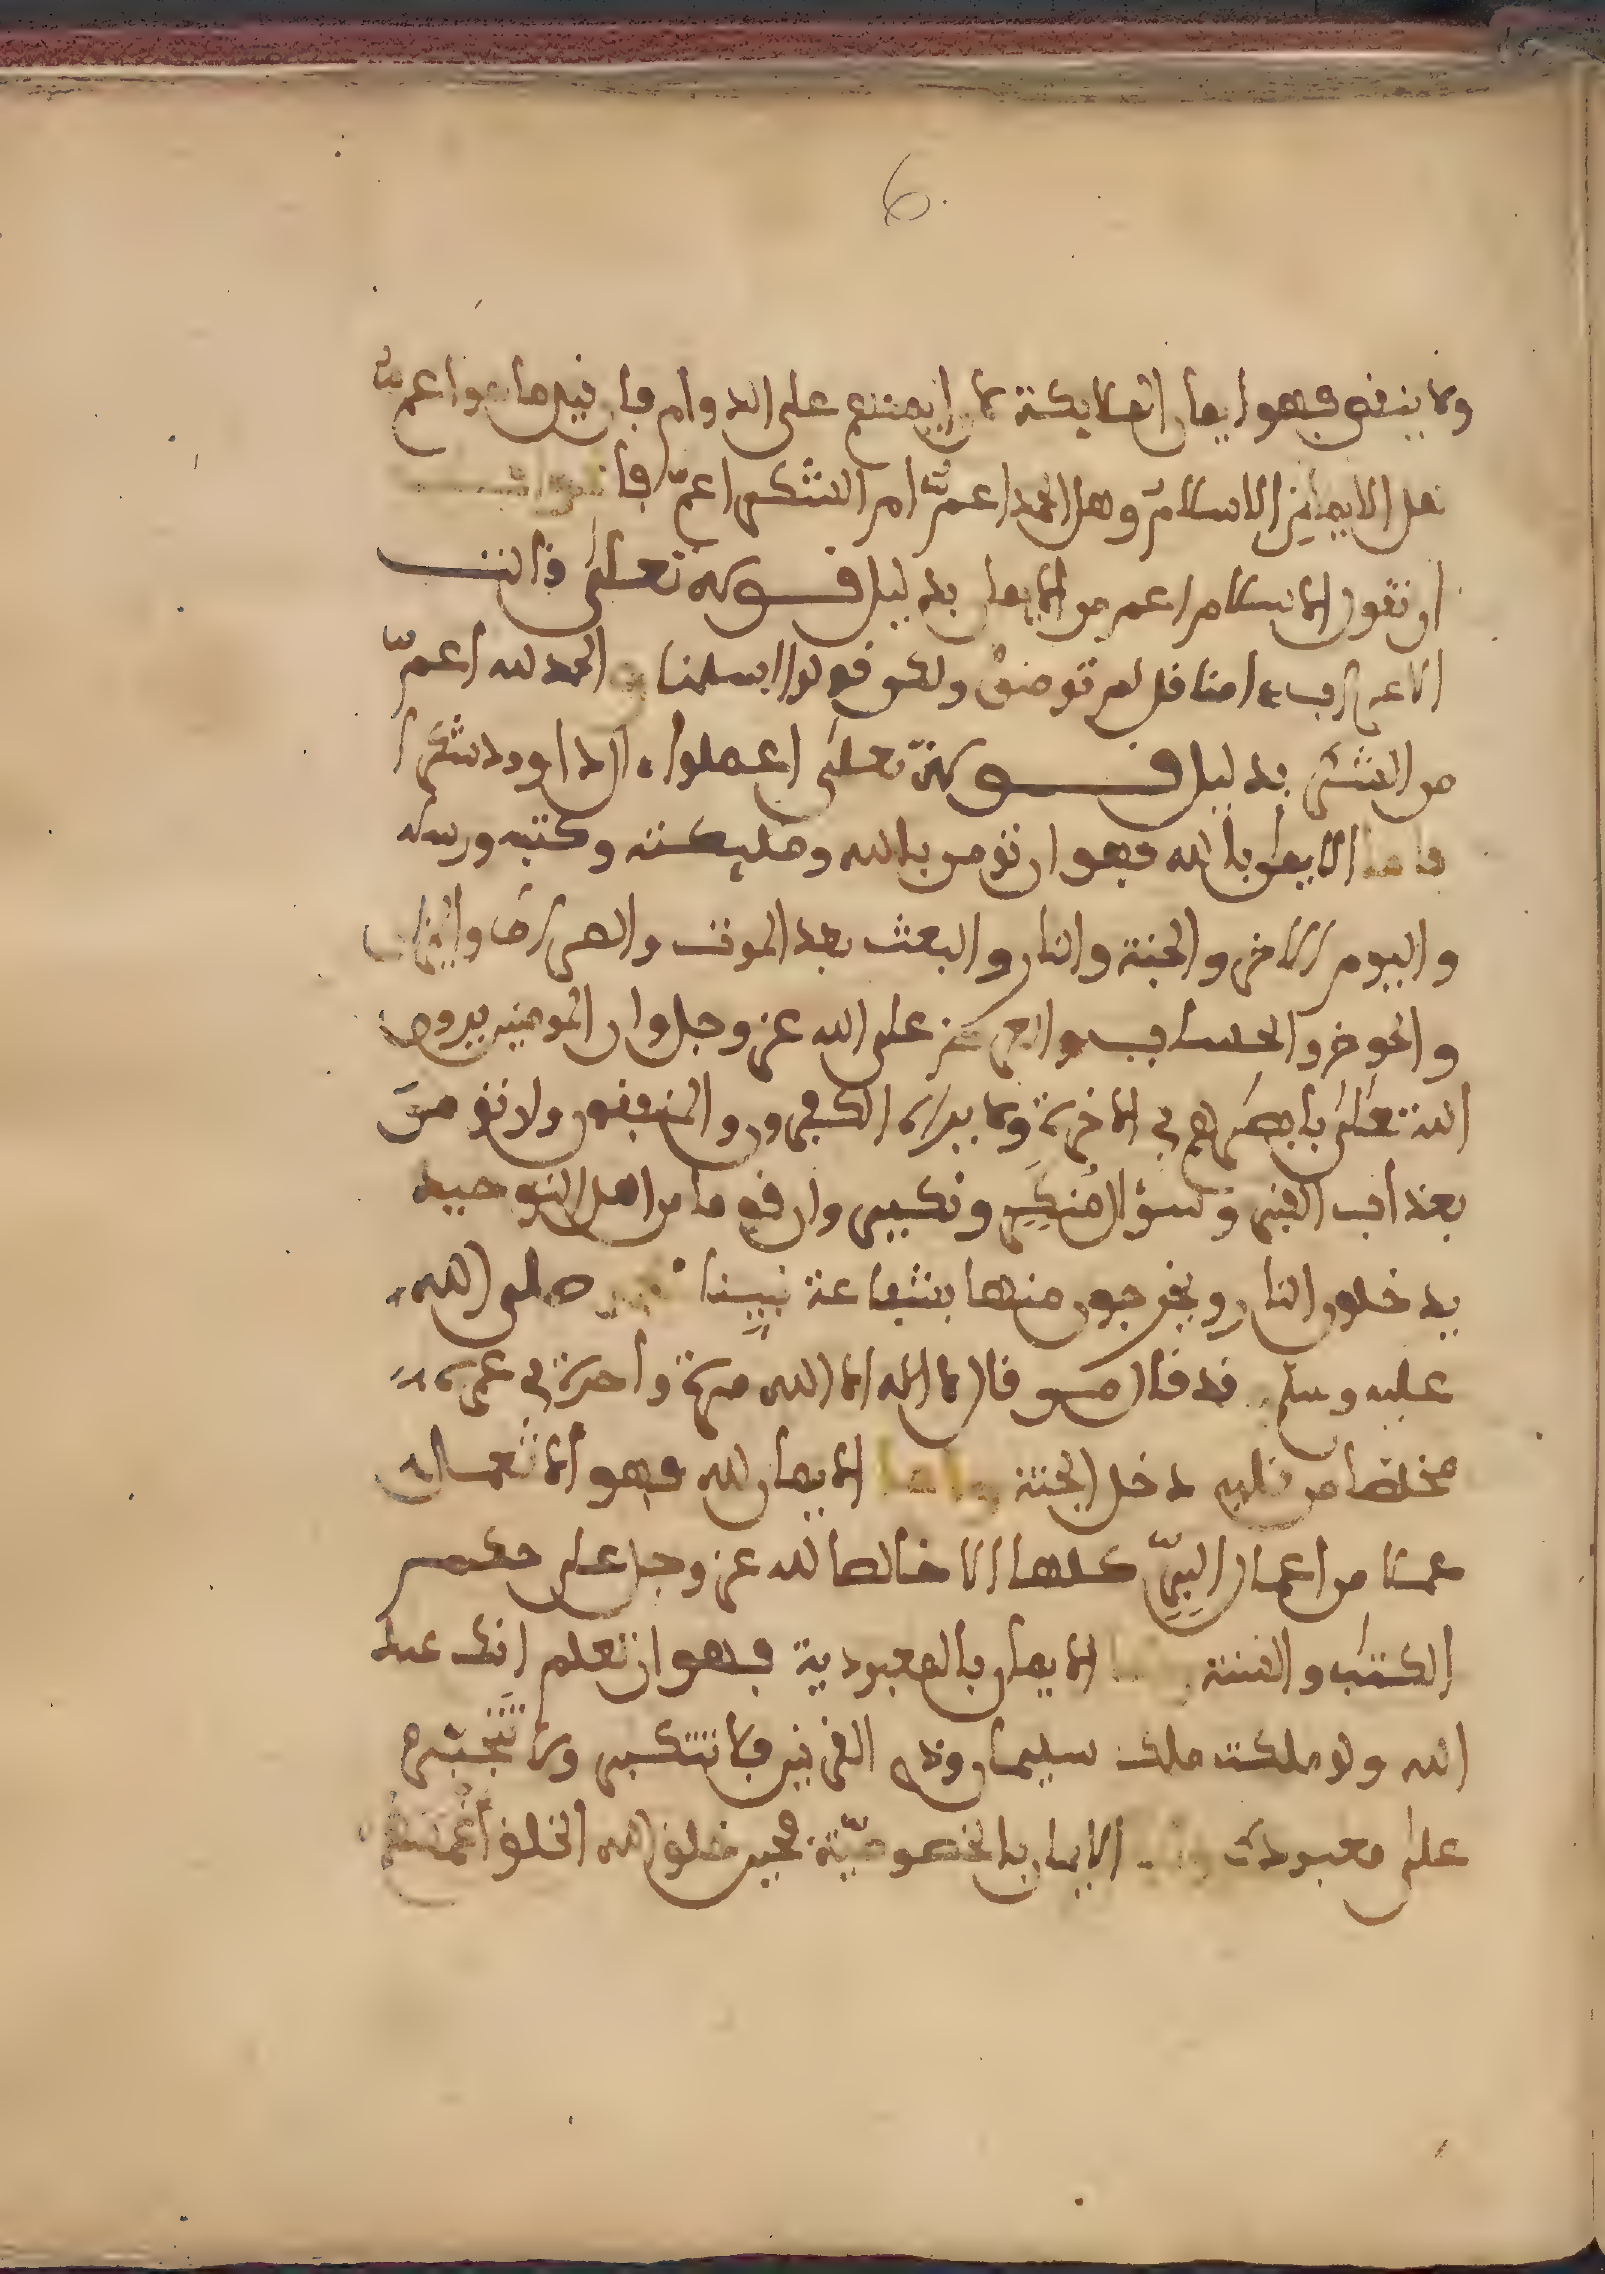 6
ولا ينفص فهو ايمان الملايكة لان ايمنهم على الدوام فان قيل ما هو اعم
هل الايمان ام الاسلام وهل الحمد اعم ام الشكر اعم فا
ان تقول الاسلام اعم من الايمان بدليل قوله تعلى قالت
الاعراب ءامنا قل لم تومنوا ولكن قولوا اسلمنا والحمد لله اعم
من الشكر بدليل قوله تعلى اعملوا ءال داوود شكرا
واما الايمن بالله فهو ان تومن بالله ومليكته وكتبه ورسله
واليوم الاخر والجنة والنار والبعث بعد الموت والصراط والميزان
والحوض والحساب والعرض على الله عز وجل وان المومنين يرون
الله تعلى بابصرهم في الاخرة ولا يراه الكفرون والمنفقون ولا تومن
بعذاب القبر وسؤال منكر ونكير وان قوما من اهل التوحيد
يدخلون النار ويخرجون منها بشفاعة نبينا محمد صلى الله
عليه وسلم قد قال من قال لا اله الا الله مرة واحدة في عمره
مخلصا من قلبه دخل الجنة واما الايمان لله فهو الا تعمل
عملا من اعمال البر كلها الا خالصا لله عز وجل على حكم
الكتب والسنة واما الايمان بالعبودية فهو ان تعلم انك عبد
الله ولو ملكت ملك سليمان وذي القرنين فلا تتكبر ولا تتجبر
على معبودك واما الايمان بالخصوصية فحين خلق الله الخلق